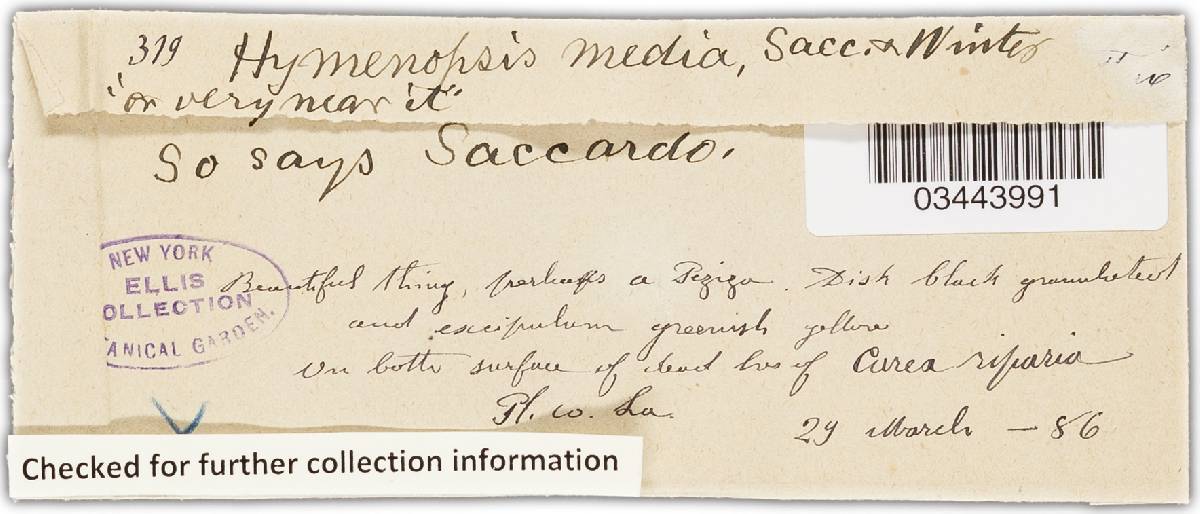 319 Hymenopsis media, Sacc. & Winter
"or very near it"
So says Saccardo.
03443991
NEW YORK
ELLIS
OLLECTION
ANICAL GARDEN.
Beautiful thing, perhaps a Peziza. Disk black granulated
and excipulum greenish yellow
On both surface of dead lvs of Carex riparia
Pl. co. La.
29 March - 86
Checked for further collection information